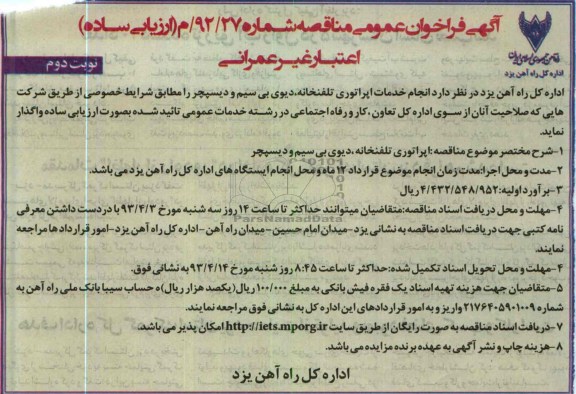 آگهی فراخوان عمومی مناقصه شماره ۹۲/۲۷/م (ارزیابی ساده)
اعتبار غیر عمرانی
نوبت دوم
اداره کل راه آهن یزد
اداره کل راه آهن یزد در نظر دارد انجام خدمات اپراتوری تلفنخانه، دیوی بی سیم و دیسپچر را مطابق شرایط خصوصی از طریق شرکت
هایی که صلاحیت آنان از سوی اداره کل تعاون، کار و رفاه اجتماعی در رشته خدمات عمومی تائید شده بصورت ارزیابی ساده واگذار
نماید.
۱-شرح مختصر موضوع مناقصه: اپراتوری تلفنخانه، دیوی بی سیم و دیسپچر
۲-مدت و محل اجرا: مدت زمان انجام موضوع قرارداد ۱۲ ماه و محل انجام ایستگاه های اداره کل راه آهن یزد می باشد.
۳-برآورد اولیه: ۴/۴۳۲/۵۴۸/۹۵۲ ریال
۴-مهلت و محل دریافت اسناد مناقصه: متقاضیان میتوانند حداکثر تا ساعت ۱۴ روز سه شنبه مورخ ۹۳/۴/۳ با در دست داشتن معرفی
نامه کتبی جهت دریافت اسناد مناقصه به نشانی یزد-میدان امام حسین-میدان راه آهن-اداره کل راه آهن یزد-امور قراردادها مراجعه
نمایند.
۴-مهلت و محل تحویل اسناد تکمیل شده: حداکثر تا ساعت ۸:۴۵ روز شنبه مورخ ۹۳/۴/۱۴ به نشانی فوق.
۵-متقاضیان جهت هزینه تهیه اسناد یک فقره فیش بانکی به مبلغ ۱۰۰/۰۰۰ ریال (یکصد هزار ریال) به حساب سیبا بانک ملی راه آهن به
شماره ۲۱۷۶۴۰۵۹۰۱۰۰۹ واریز و به امور قراردادهای این اداره کل به نشانی فوق مراجعه نمایند.
۷-دریافت اسناد مناقصه به صورت رایگان از طریق سایت http://iets.mporg.ir امکان پذیر می باشد.
۸-هزینه چاپ و نشر آگهی به عهده برنده مزایده می باشد.
اداره کل راه آهن یزد
ParsNamadData